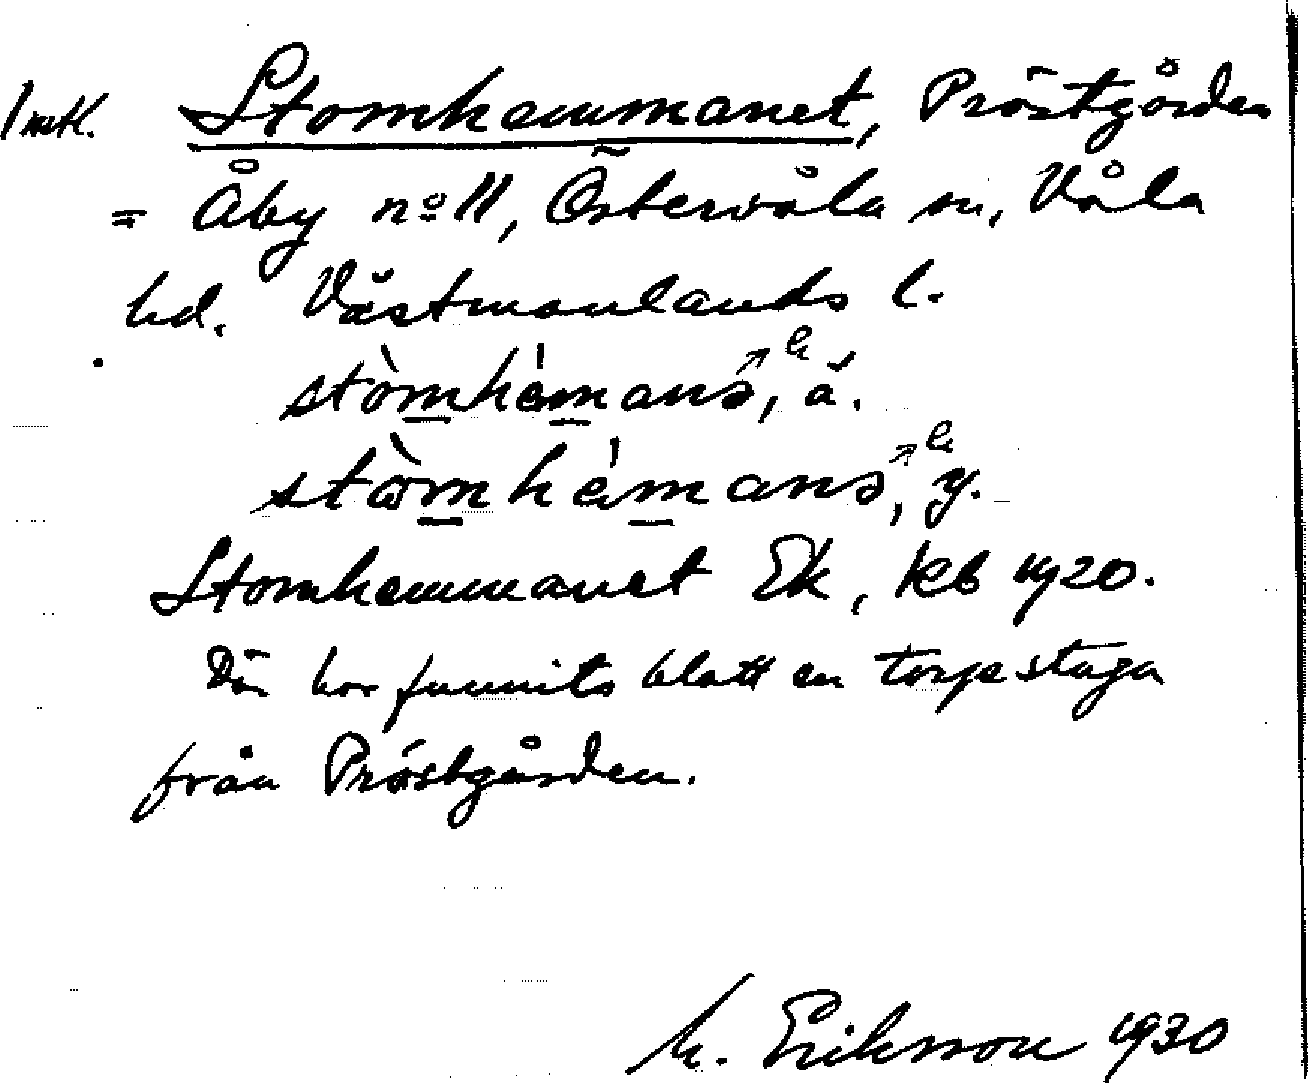 1 mtl. Stomhemmanet, Prästgården
= Åby nº 11, Östervåla sn, Våla
hd. Västmanlands l.
stòmhémanə, ä.
stòmhémanə, y.
Stomhemmanet Ek, kb 1920.
Där har funnits blott en torpstuga
från Prästgården.
M. Eriksson 1930